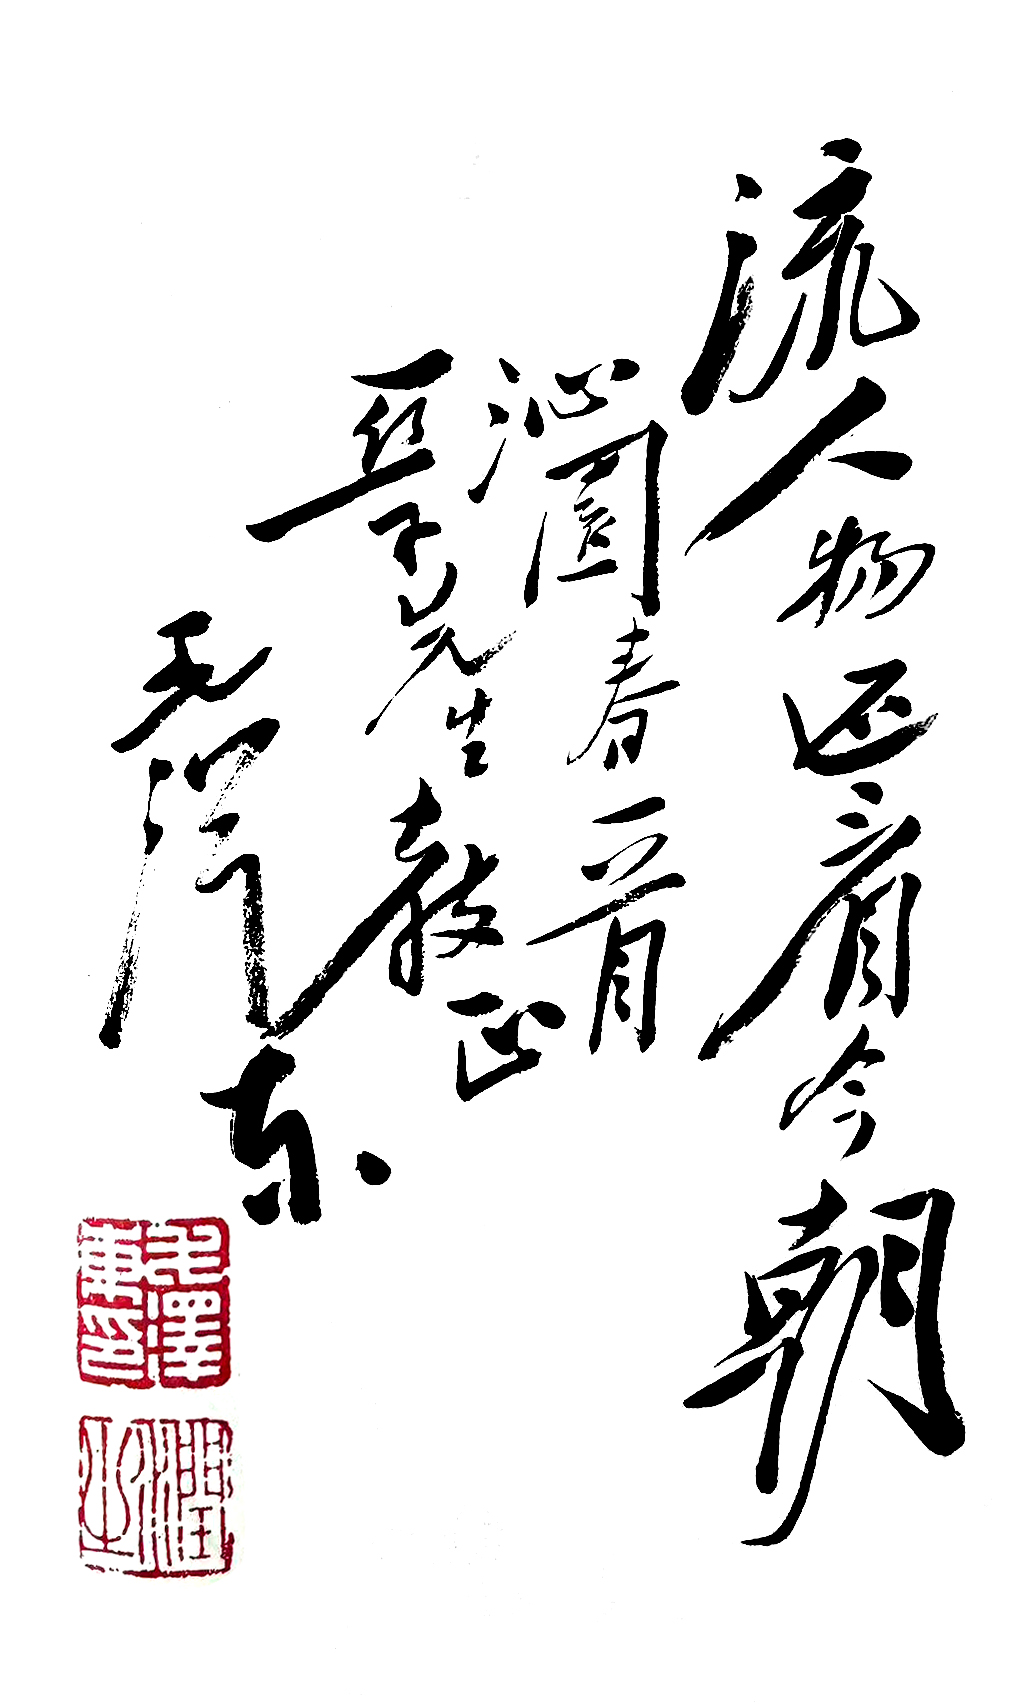 流人物还看今朝
沁園春一首
亞子先生教正
毛泽东
毛澤東印
潤之